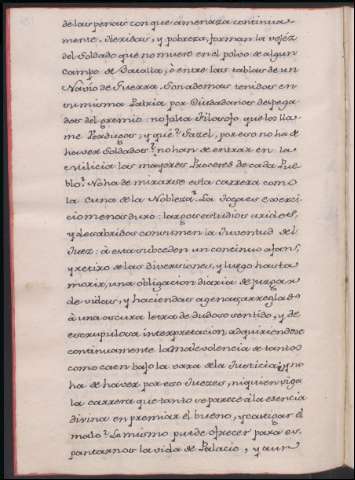 de las penas con que amenaza continua-
mente. Heridas, y pobreza, forman la vejéz
del Soldado que no muere en el polvo de algun
campo de Batalla, ò entre las tablas de un
Navio de Guerra. Son ademas tenidos en
su misma Patria por Ciudadanos despega-
dos del gremio: no falta Filosofo que los lla-
me Verdugos; y qué? Gazel, por eso no ha de
haver Soldados? no han de entrar en la
Milicia los mayores Proceres de cada Pue-
blo? No ha de mirarse esta carrera como
la cuna de la Nobleza? La Toga es exerci-
cio menos duro: largos estudios aridos,
y desabridos consumen la Juventud del
Juez: á esta suceden un continuo afan,
y retiro de las diversiones, y luego hasta
morir, una obligacion diaria de juzgar
de vidas, y haciendas agenas, arreglado
á una oscura letra de dudoso sentido, y de
escrupulosa interpretacion, adquiriendose
continuamente la malevolencia de tantos
como caen bajo la vara de la Justicia; y no
ha de haver por eso Jueces, ni quien siga
la carrera que tanto se parece á la esencia
divina en premiar el bueno, y castigar el
malo? Lo mismo puede ofrecer para es-
pantarnos la vida de Palacio, y aun